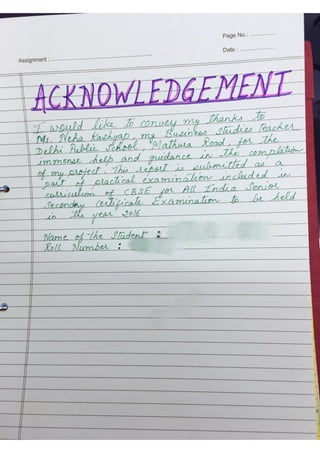 Page No.:
Date :
Assignment :
ACKNOWLEDGEMENT
I would like to convey my thanks to
Ms. Neha Kashyap, my Business Studies Teacher
Delhi Public School, Mathura Road for the
immense help and guidance in the completion
of my project. This report is submitted as a
part of practical examination included in
curriculum of CBSE for All India Senior
Secondary Certificate Examination to be held
in the year 2016
Name of the Student :
Roll Number :